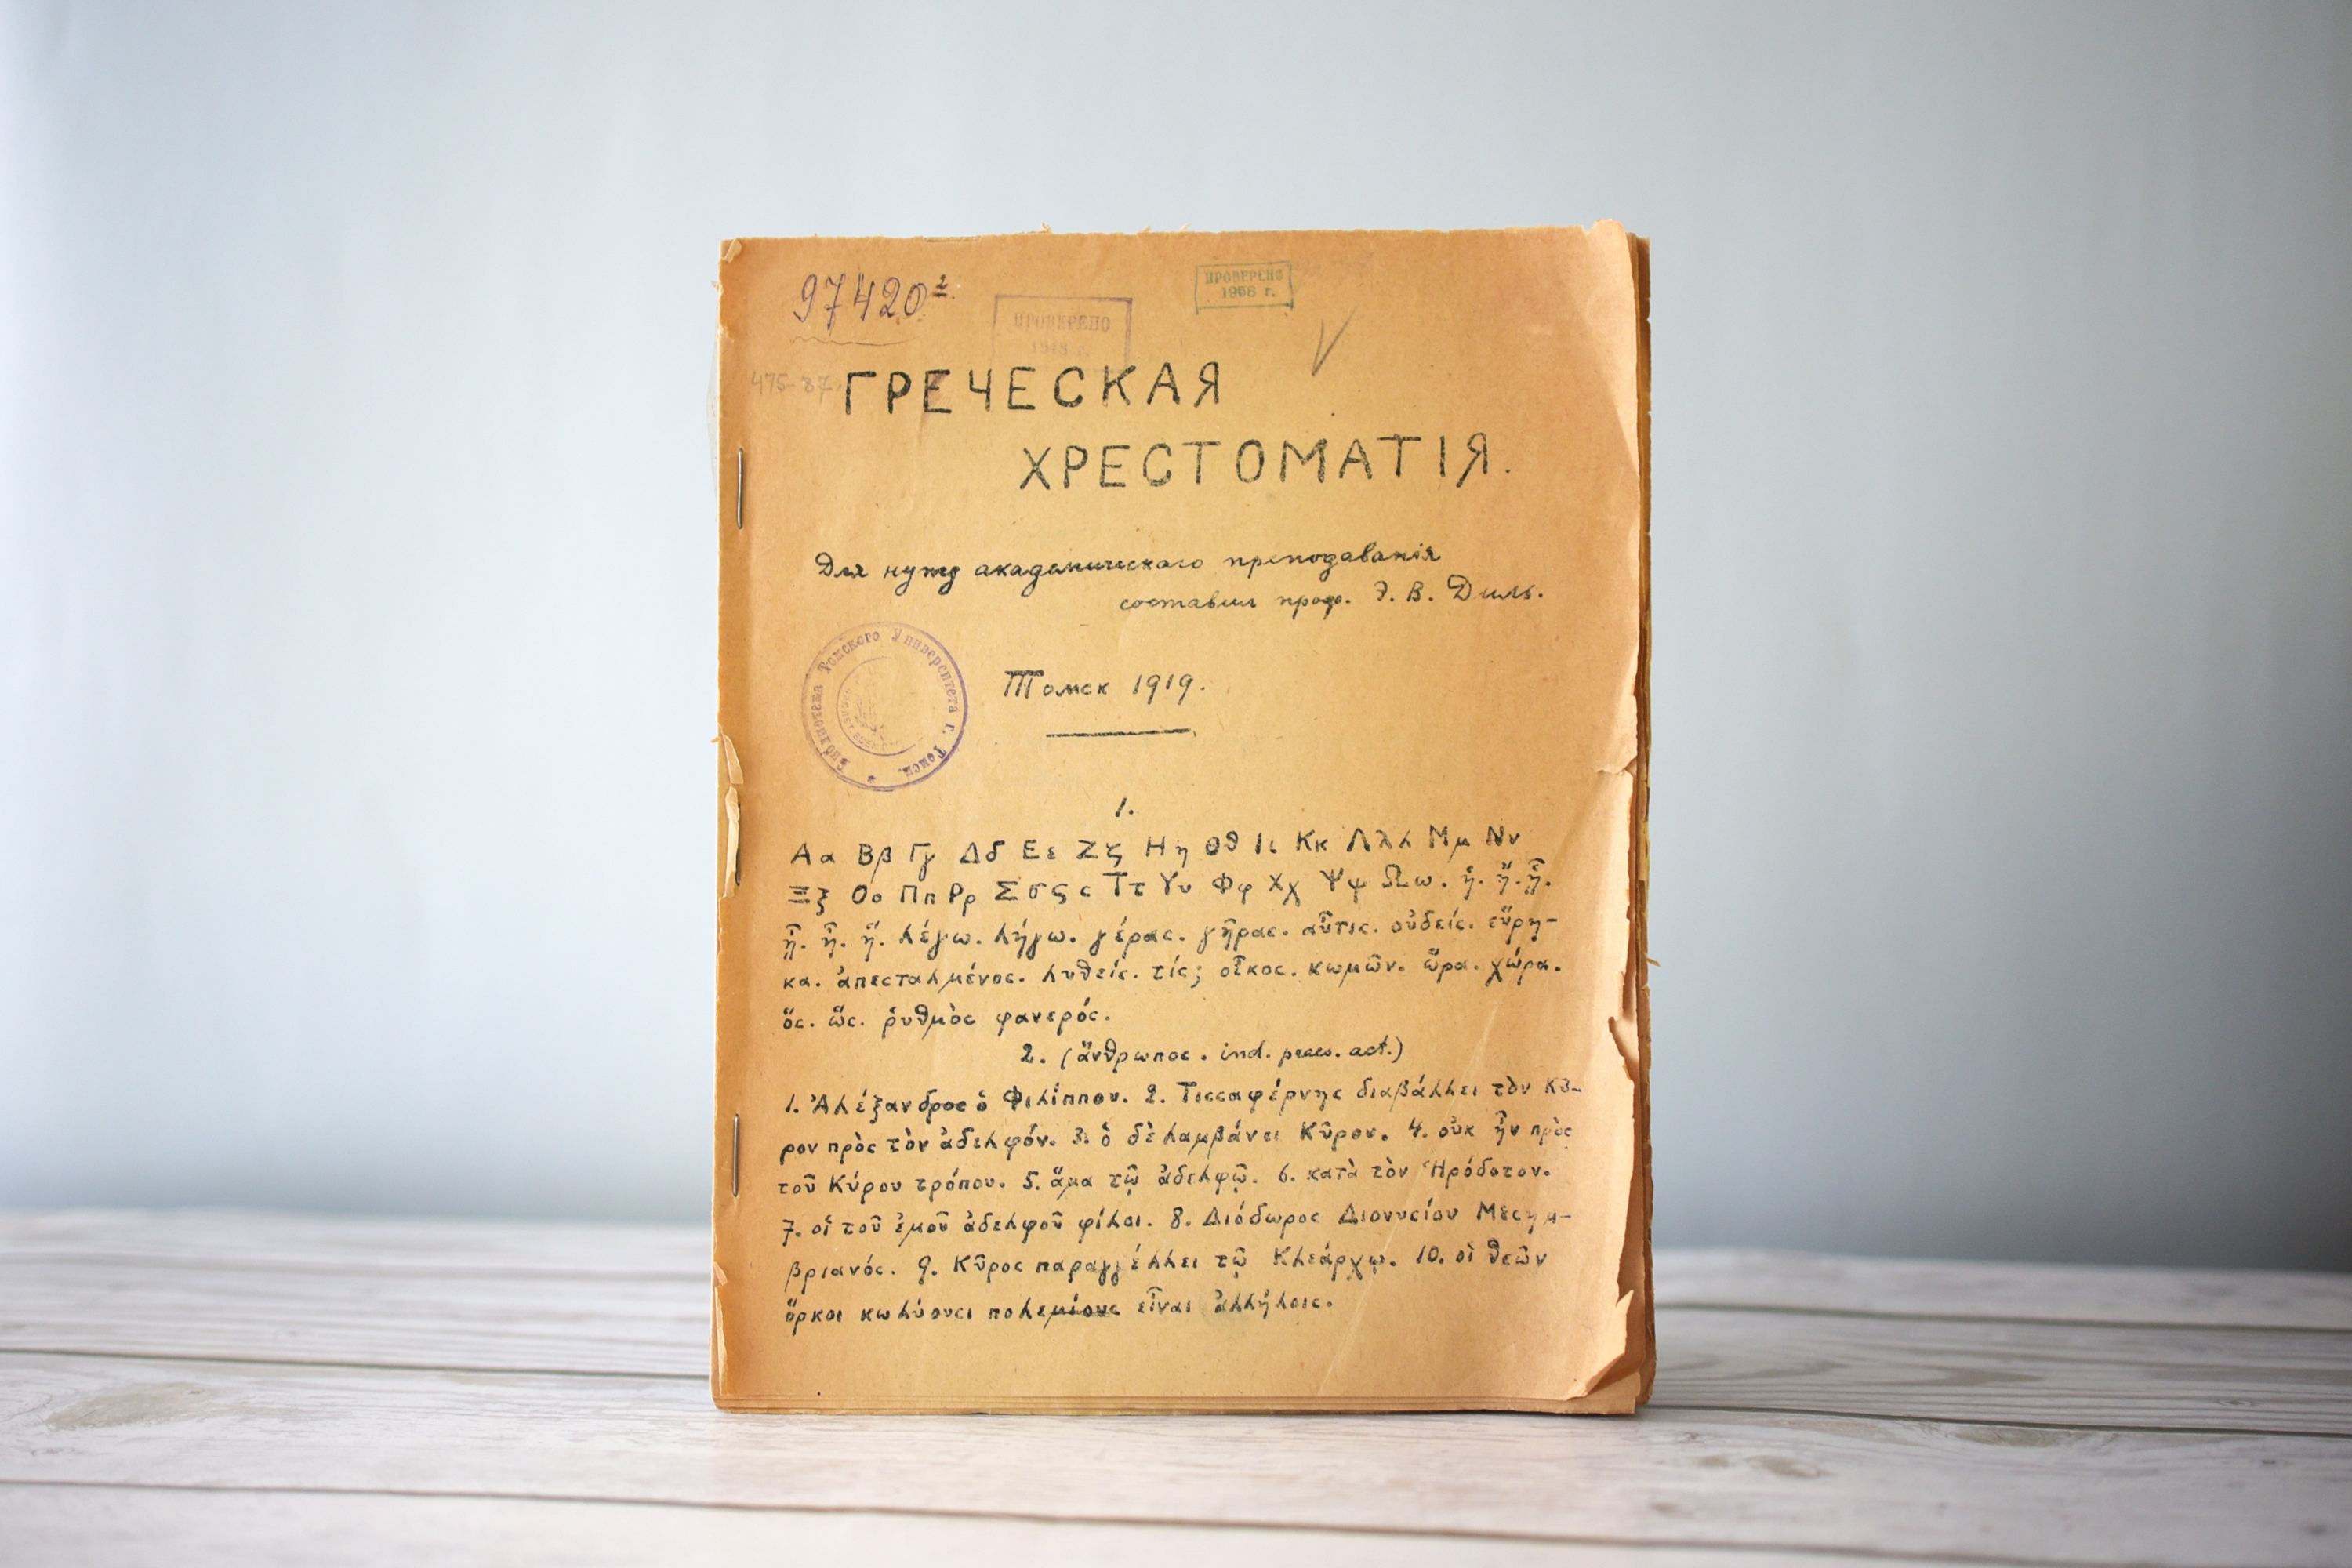 97420²
ПРОВЕРЕНО
1968 г.
ПРОВЕРЕНО
475-87
ГРЕЧЕСКАЯ
ХРЕСТОМАТІЯ.
Для нужд академическаго преподаванія
составил проф. Э. В. Диль.
Библіотека Томского Университета г. Томск
Томск 1919.
1.
Αα Ββ Γγ Δδ Εε Ζζ Ηη Θϑ Ιι Κκ Λλλ Μμ Νν
Ξξ Οο Ππ Ρρ Σσςϲ Ττ Υυ Φφ Χχ Ψψ Ωω.
λέγω. λήγω. γέραϲ. γῆραϲ. αὖτιϲ. οὐδείϲ. εὕρη-
κα. ἀπεϲταλμένοϲ. λυθείϲ. τίϲ; οἶκοϲ. κωμῶν. ὥρα. χώρα.
ὅϲ. ὥϲ. ῥυθμὸϲ φανερόϲ.
2. (ἄνθρωποϲ. ind. praes. act.)
1. Ἀλέξανδροϲ ὁ Φιλίππου. 2. Τιϲϲαφέρνηϲ διαβάλλει τὸν Κῦ-
ρον πρὸϲ τὸν ἀδελφόν. 3. ὁ δὲ λαμβάνει Κῦρον. 4. οὐκ ἦν πρὸϲ
τοῦ Κύρου τρόπου. 5. ἅμα τῷ ἀδελφῷ. 6. κατὰ τὸν Ἡρόδοτον.
7. οἱ τοῦ ἐμοῦ ἀδελφοῦ φίλοι. 8. Διόδωροϲ Διονυϲίου Μεϲημ-
βριανόϲ. 9. Κῦροϲ παραγγέλλει τῷ Κλεάρχῳ. 10. οἱ θεῶν
ὅρκοι κωλύουϲι πολεμίουϲ εἶναι ἀλλήλοιϲ.